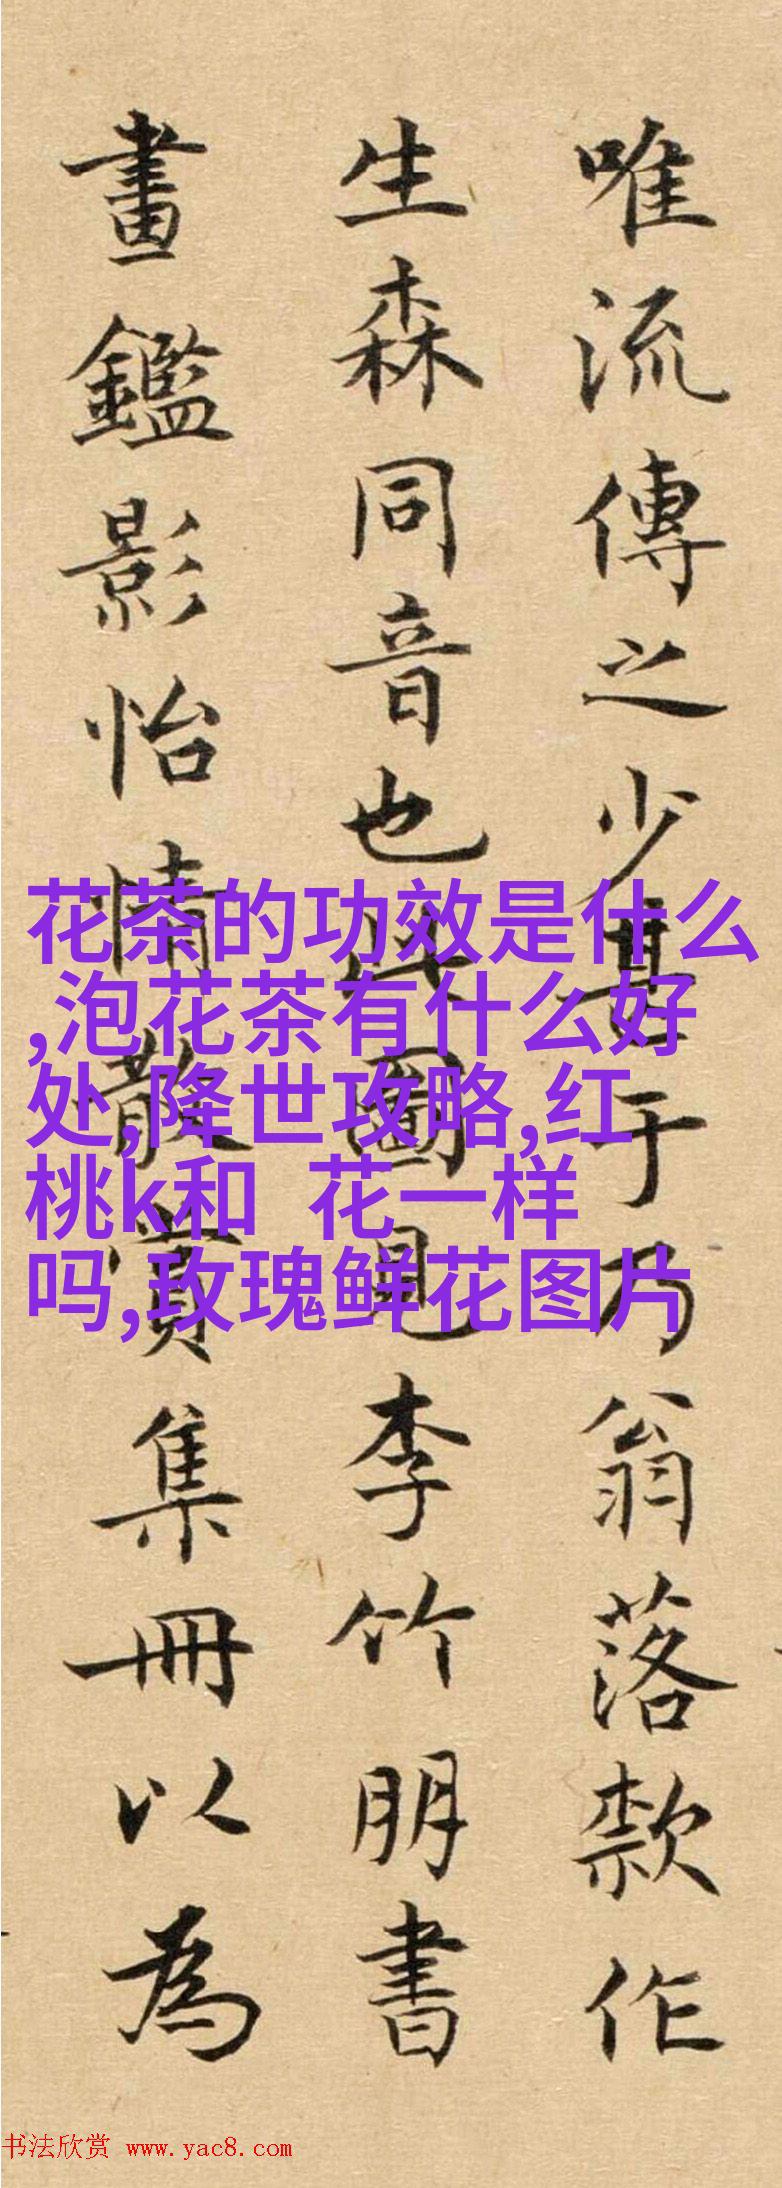 唯流傳之少甚于乃翁落款作
生森同音也此圖見李竹朋書
畫鑑影怡情散賞集冊以為
花茶的功效是什么
,泡花茶有什么好
处,降世攻略,红
桃k和 花一样
吗,玫瑰鲜花图片
书法欣赏 www.yac8.com